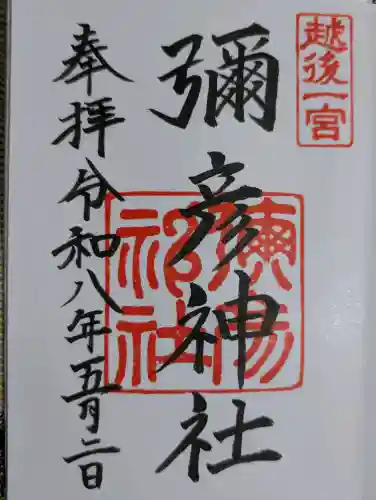 越後一宮
彌彦神社
奉拝令和八年五月二日